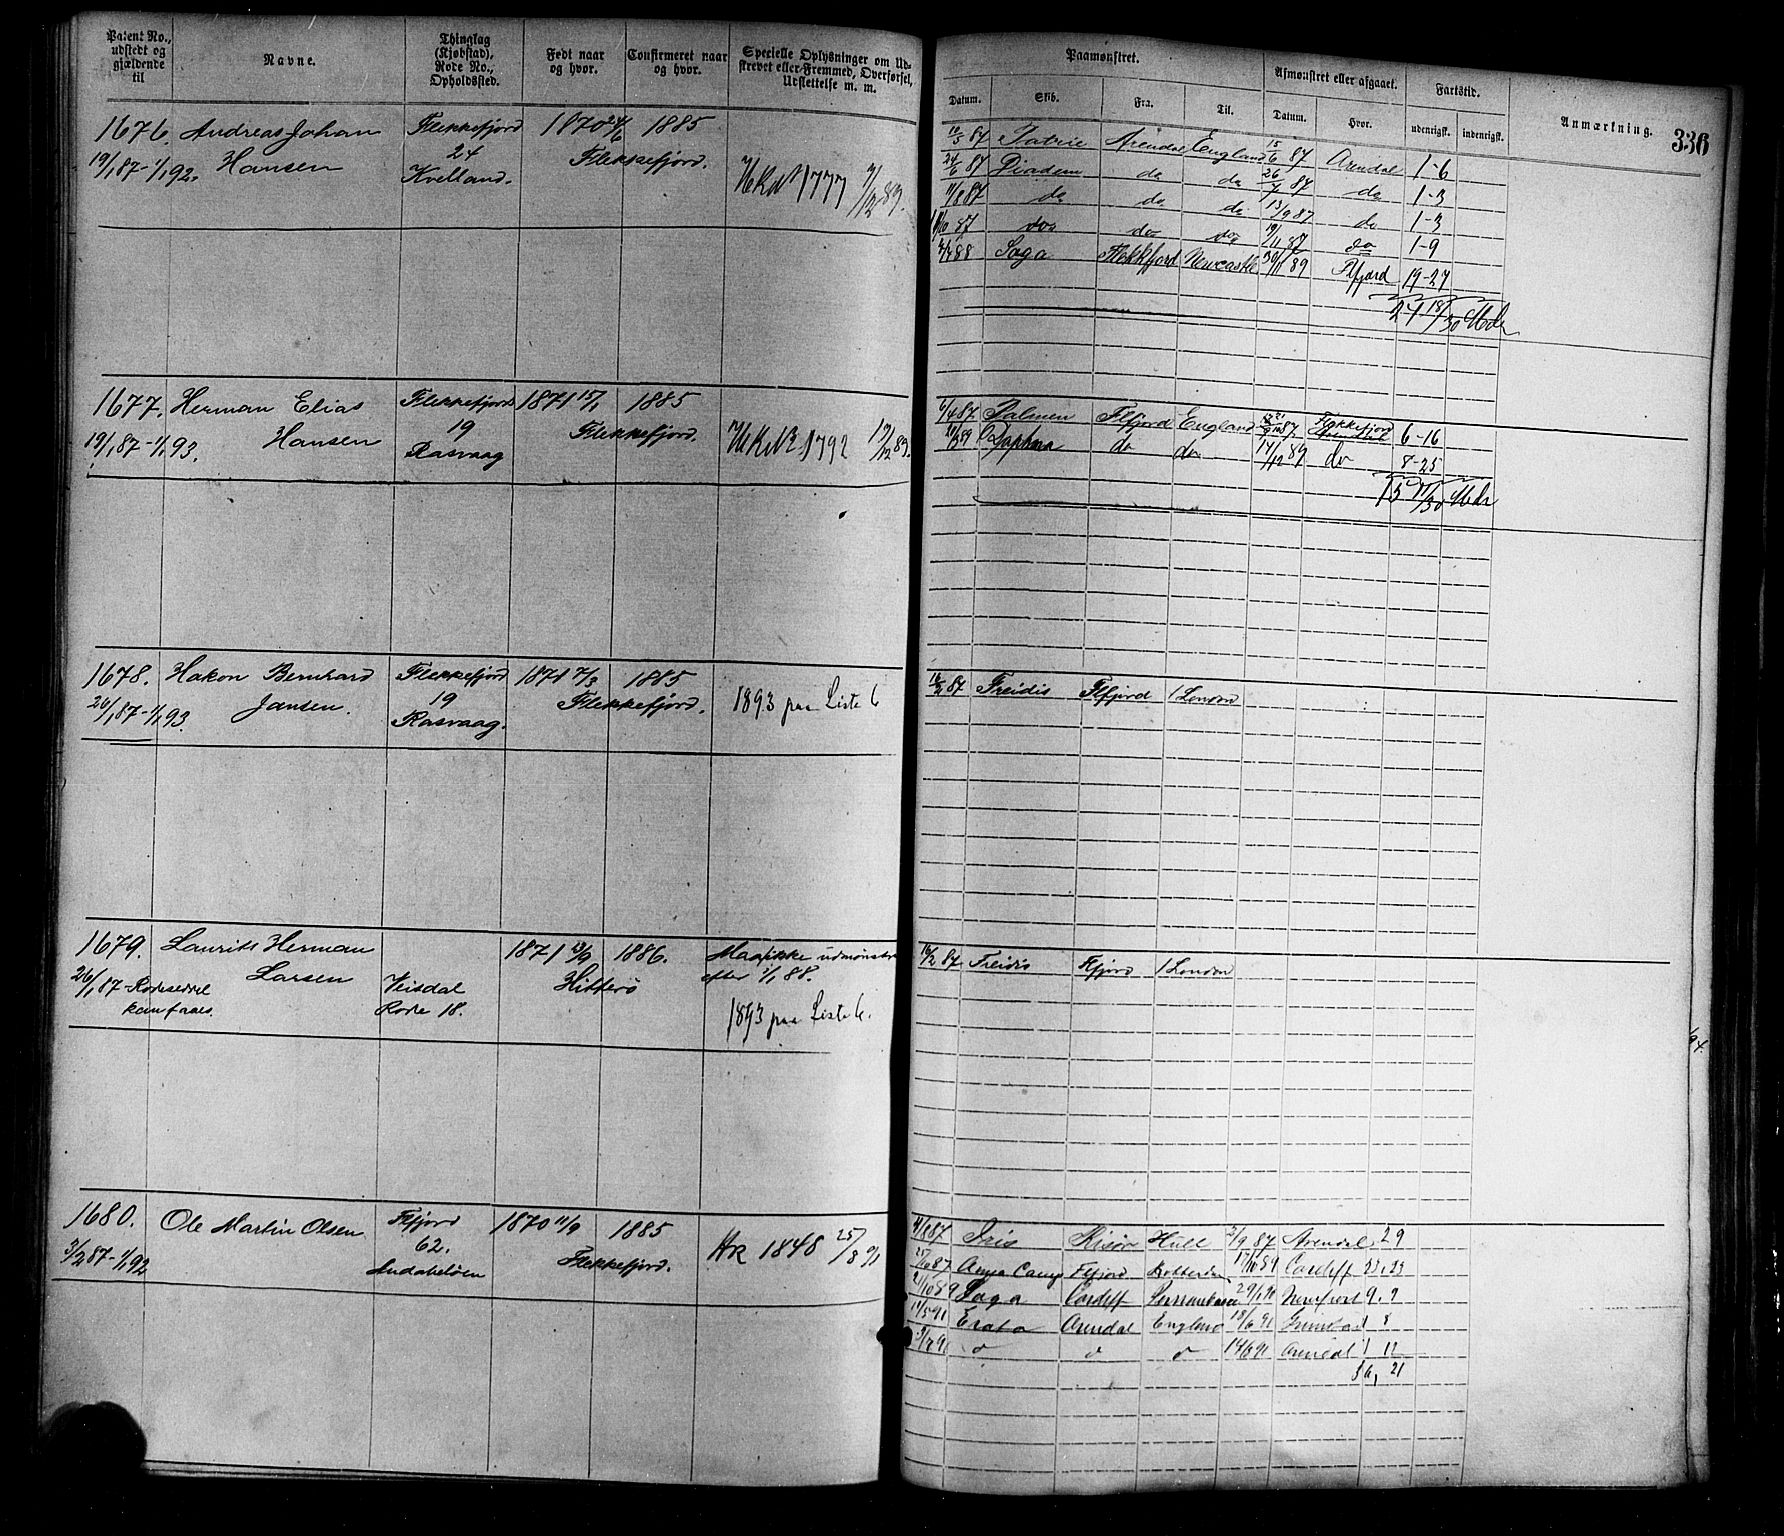 Patent No., udstedt og gjældende til
Navne.
Thinglag (Kjøbstad), Rode No., Opholdssted.
Født naar og hvor.
Confirmeret naar og hvor.
Specielle Oplysninger om Udskrevet eller Fremmed, Overførsel, Udslettelse m. m.
Paamønstret.
Afmønstret eller afgaaet.
Fartstid.
Anmærkning.
336
Datum. Skib. Fra. Til. Datum. Hvor. udenrigsk. indenrigsk.
1676. Andreas Johan Flekkefjord 1870 24/6 1885
19/1 87-1/1 92. Hansen 24 Flekkefjord.
Kvelland. HkdNo 1777
10/5 87 Patrie Arendal England 15/6 87 Arendal 1-6
24/6 87 Diadem do do 26/7 87 do 1-3
11/8 87 do do do 13/9 87 do 1-3
do do do 19/11 87 do 1-9
Saga Flekkfjord Newcastle 30/11 89 Flfjord 19-27
24 18/30 Mdr
1677. Herman Elias Flekkefjord 1871 15/1 1885
19/1 87-1/1 93. Hansen 19 Flekkefjord.
Rasvaag HkdNo 1792 19/12 89.
6/4 87 Palmen Flfjord England Flekkefjord 6-16
Daphne do do 14/12 89 do 8-25
15 11/30 Mdr
1678. Hakon Bernhard Flekkefjord 1871 7/3 1885
26/1 87-1/1 93. Jansen. 19 Flekkefjord.
Rasvaag. 1893 paa Liste 6
16/2 87 Freidis Flfjord London
1679. Laurits Herman 1871 23/9 1886. Maa ikke udmønstres
26/1 87-Rodeseddel Larsen Veisdal Hitterö efter 1/1 88.
kan faaes. Rode 18. 1893 paa Liste 6.
16/2 87 Freidis Flfjord London
1680. Ole Martin Olsen Flfjord 1870 11/9 1885
3/2 87-1/1 92 62. Flekkefjord. HR 1848 25/8 91
Andabelöen
Iris Risör Hull 3/9 87 Arendal 29
Anna Camp Flfjord Rotterdam Cardiff 23,23
21/10 89 Saga Cardiff 29/1 90 Newport 9.9
14/5 91 Erato Arendal England 18/6 91 Grimstad 1 8
14/8 91 Arendal 1 12
36, 21